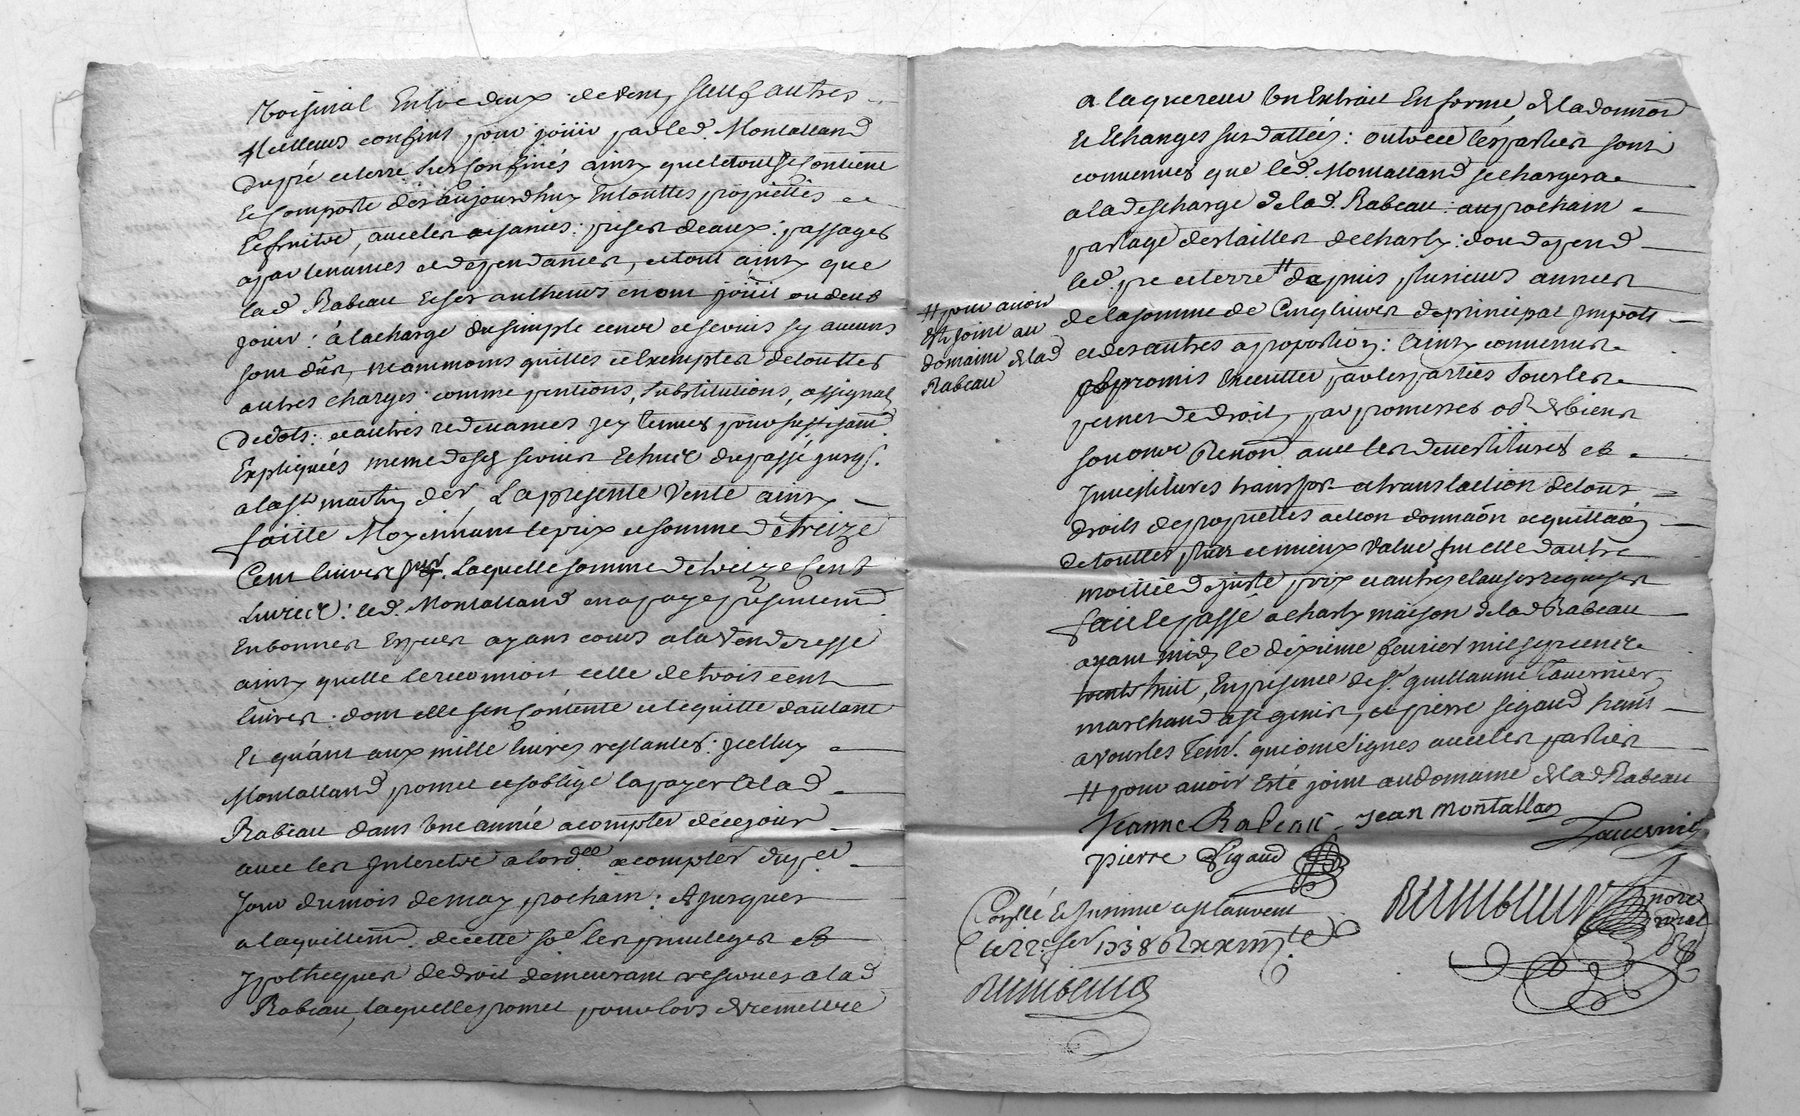 Voisinal Entredeux de vent, sauf autres
Meilleurs confins pour joüir parled. Montalland
dupré et terre sus Confinés ainsy queletout se Contient
Et Comporte dés aujourdhuy Entouttes proprietés et
Et fruits, avecles aisances: prises deaux: passages
apartenances et dependances, et tout ainsy que
lad Rabeau Et ses autheurs en ont joüit ou deub
joüir: à lacharge du simple cence et servis sy aucuns
sont dûs, neammoins quittes et Exemptes detouttes
autres charges comme pentions, substitutions, assignal
dedots: et autres redevances jcy tenues pour suffisamt.
Expliquées meme des servis Echus du passé jusqs.
alast martin der. La presente Vente ainsy
faitte Moyennant leprix et somme detreize
Cent livres laquelle somme detreize Cent
Livres: led. Montalland en a payé presentement
Enbonnes Especes ayans cours ala venderesse
ainsy quelle lereconnoit celle detrois cent
livres. dont elle sen Contente et lequitte dautant
Et quant aux mille livres restantes: jcelluy
Montalland promet et soblige lapayer alad
Rabeau dans une année acompter decejour
avec les Interets alordce acompter du per
Jour dumois demay prochain: Et jusques
alaquittemt. decette soe. les privileges et
Ypotheques dedroit demeurant reservés alad
Rabeau, laquelle promet pourlors deremettre
alaquereur un Extrait En forme, de ladonnaon
Et Echanges sus dattées: outrece lesparties sont
convenues que led. Montalland sechargera
aladescharge delad. Rabeau: auprochain
partage destailles decharly: dou depend
led. pre et terre # depuis plusieurs années
delasomme de Cinq livres deprincipal Impots
et des autres aproportion: Ainsy convenu
promis Executter par lesparties sousles
peines de droit, par promesses obon de biens
renon avec les devestitures et
Investitures transport et translaction detous
droits deproprietté action donnaôn et quittaôn
detouttes plus et mieux value fut elle dautre
moittié dejuste prix et autres clauses requises
fait et passé acharly maison delad Rabeau
avant midy le dixieme fevrier milseptcent
trente huit, En presence de sr. guillaume Tavernier
marchand a st genis, et pierre sigaud hant
avourles Tem. qui ont signés avecles parties
# pour avoir Esté joint au domaine delad Rabeau
# pour avoir
esté joint au
domaine de lad
Rabeau
Jeanne Rabeau Jean Montallan
Tavernier
pierre Sigaud
Conllé Et Insinué a st laurent
le 22e fer. 1738